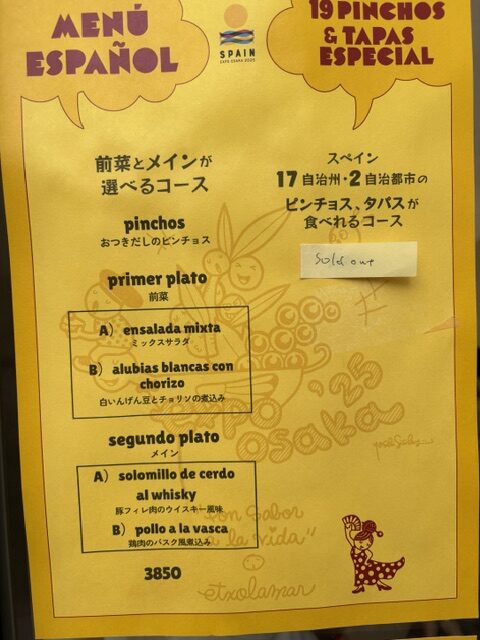 MENÚ
ESPAÑOL
SPAIN
EXPO OSAKA 2025
19 PINCHOS
& TAPAS
ESPECIAL
前菜とメインが
選べるコース
pinchos
おつきだしのピンチョス
primer plato
前菜
A) ensalada mixta
ミックスサラダ
B) alubias blancas con
chorizo
白いんげん豆とチョリソの煮込み
segundo plato
メイン
A) solomillo de cerdo
al whisky
豚フィレ肉のウイスキー風味
B) pollo a la vasca
鶏肉のバスク風煮込み
3850
スペイン
17 自治州・2 自治都市の
ピンチョス、タパスが
食べれるコース
Sold out
expo '25
osaka
"con sabor
a la vida"
etxolamar